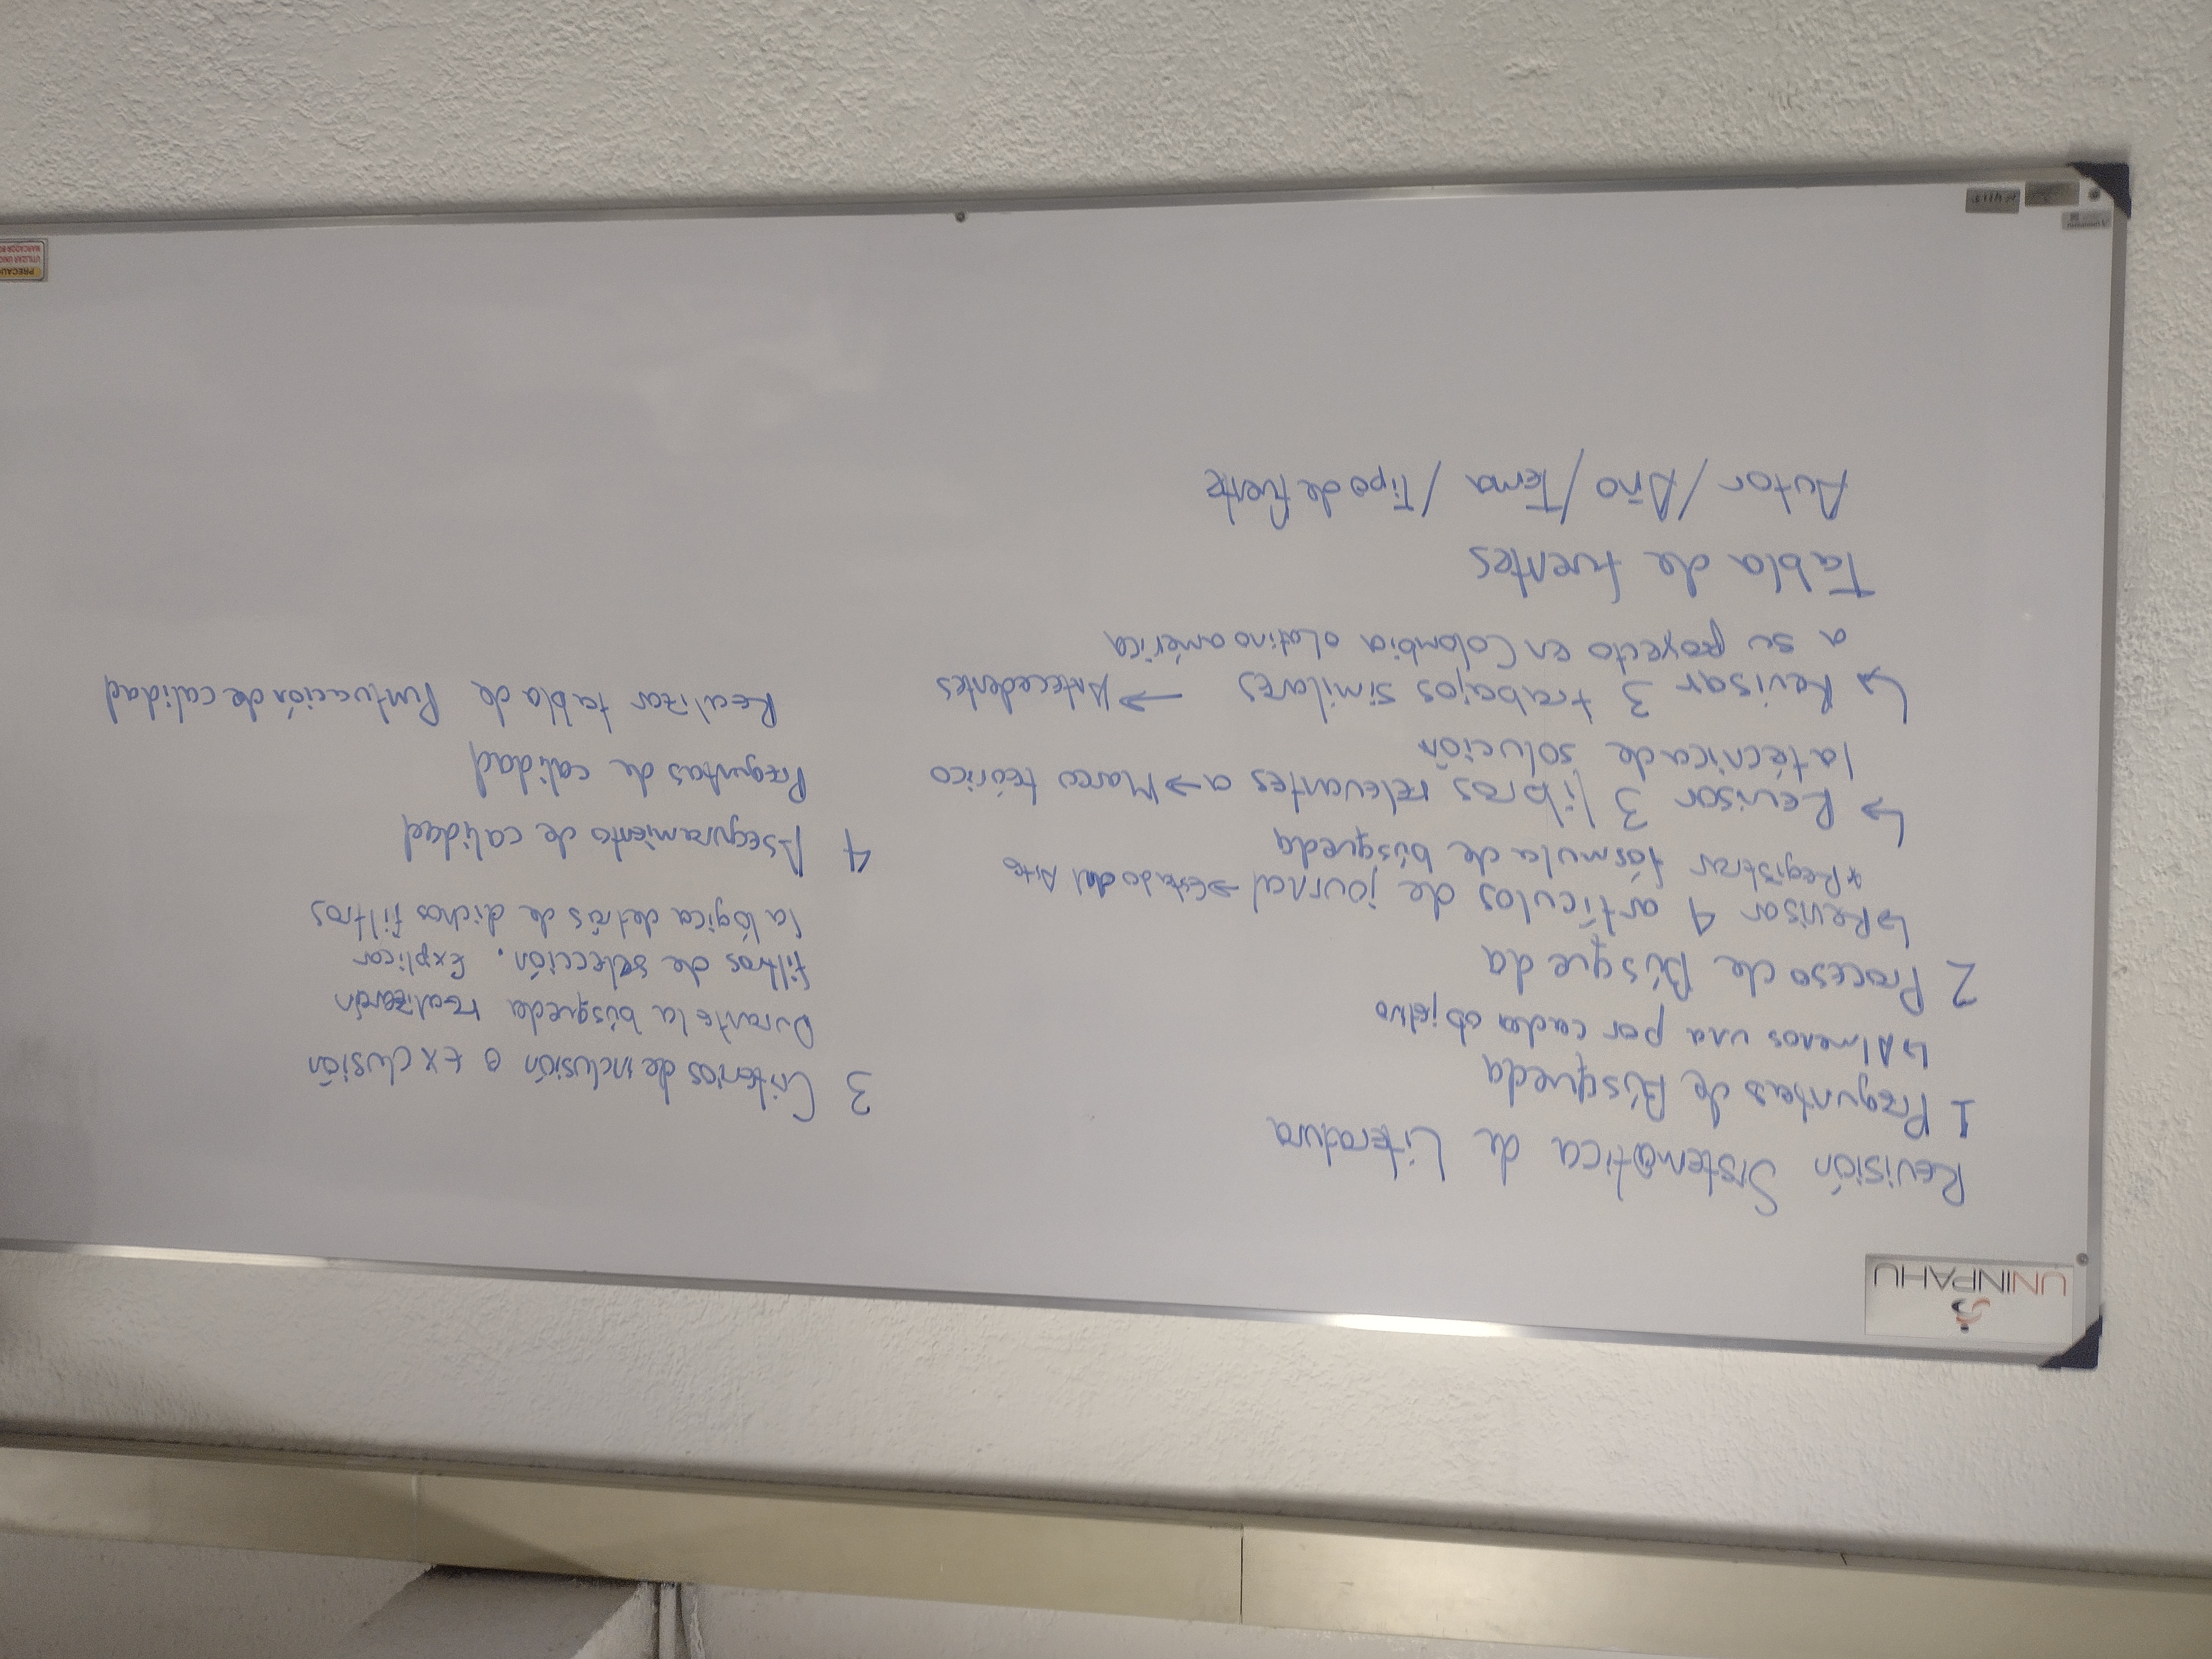 UNINPAHU
Revisión Sistemática de Literatura
1 Preguntas de Búsqueda
↳ Almenos una por cada objetivo
2 Proceso de Búsqueda
↳ Revisar 4 artículos de journal → Estado del Arte
* Registrar fórmula de búsqueda
↳ Revisar 3 libros relevantes a → Marco teórico
la técnica de solución
↳ Revisar 3 trabajos similares → Antecedentes
a su proyecto en Colombia o Latinoamérica
Tabla de fuentes
Autor / Año / Tema / Tipo de fuente
3 Criterios de inclusión o exclusión
Durante la búsqueda realizarán
filtros de selección. Explicar
la lógica detrás de dichos filtros
4 Aseguramiento de calidad
Preguntas de calidad
Realizar tabla de Puntuación de calidad